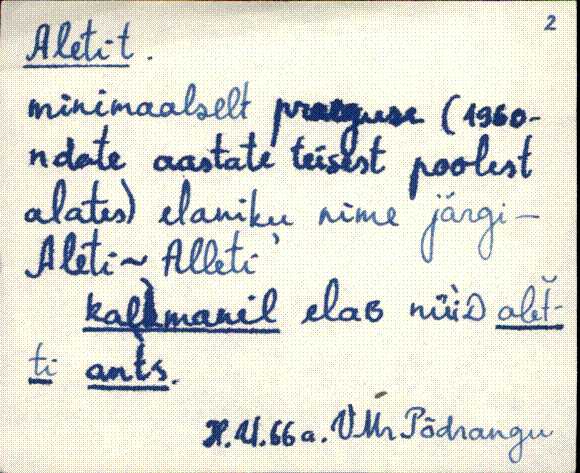 2
Aleti-t.
minimaalselt praeguse (1960-
ndate aastate teisest poolest
alates) elaniku nime järgi –
Aleti ~ Alleti
kalmanil elab nüüd alet̆-
ti ants.
H.U.66a. VMr Põdrangu